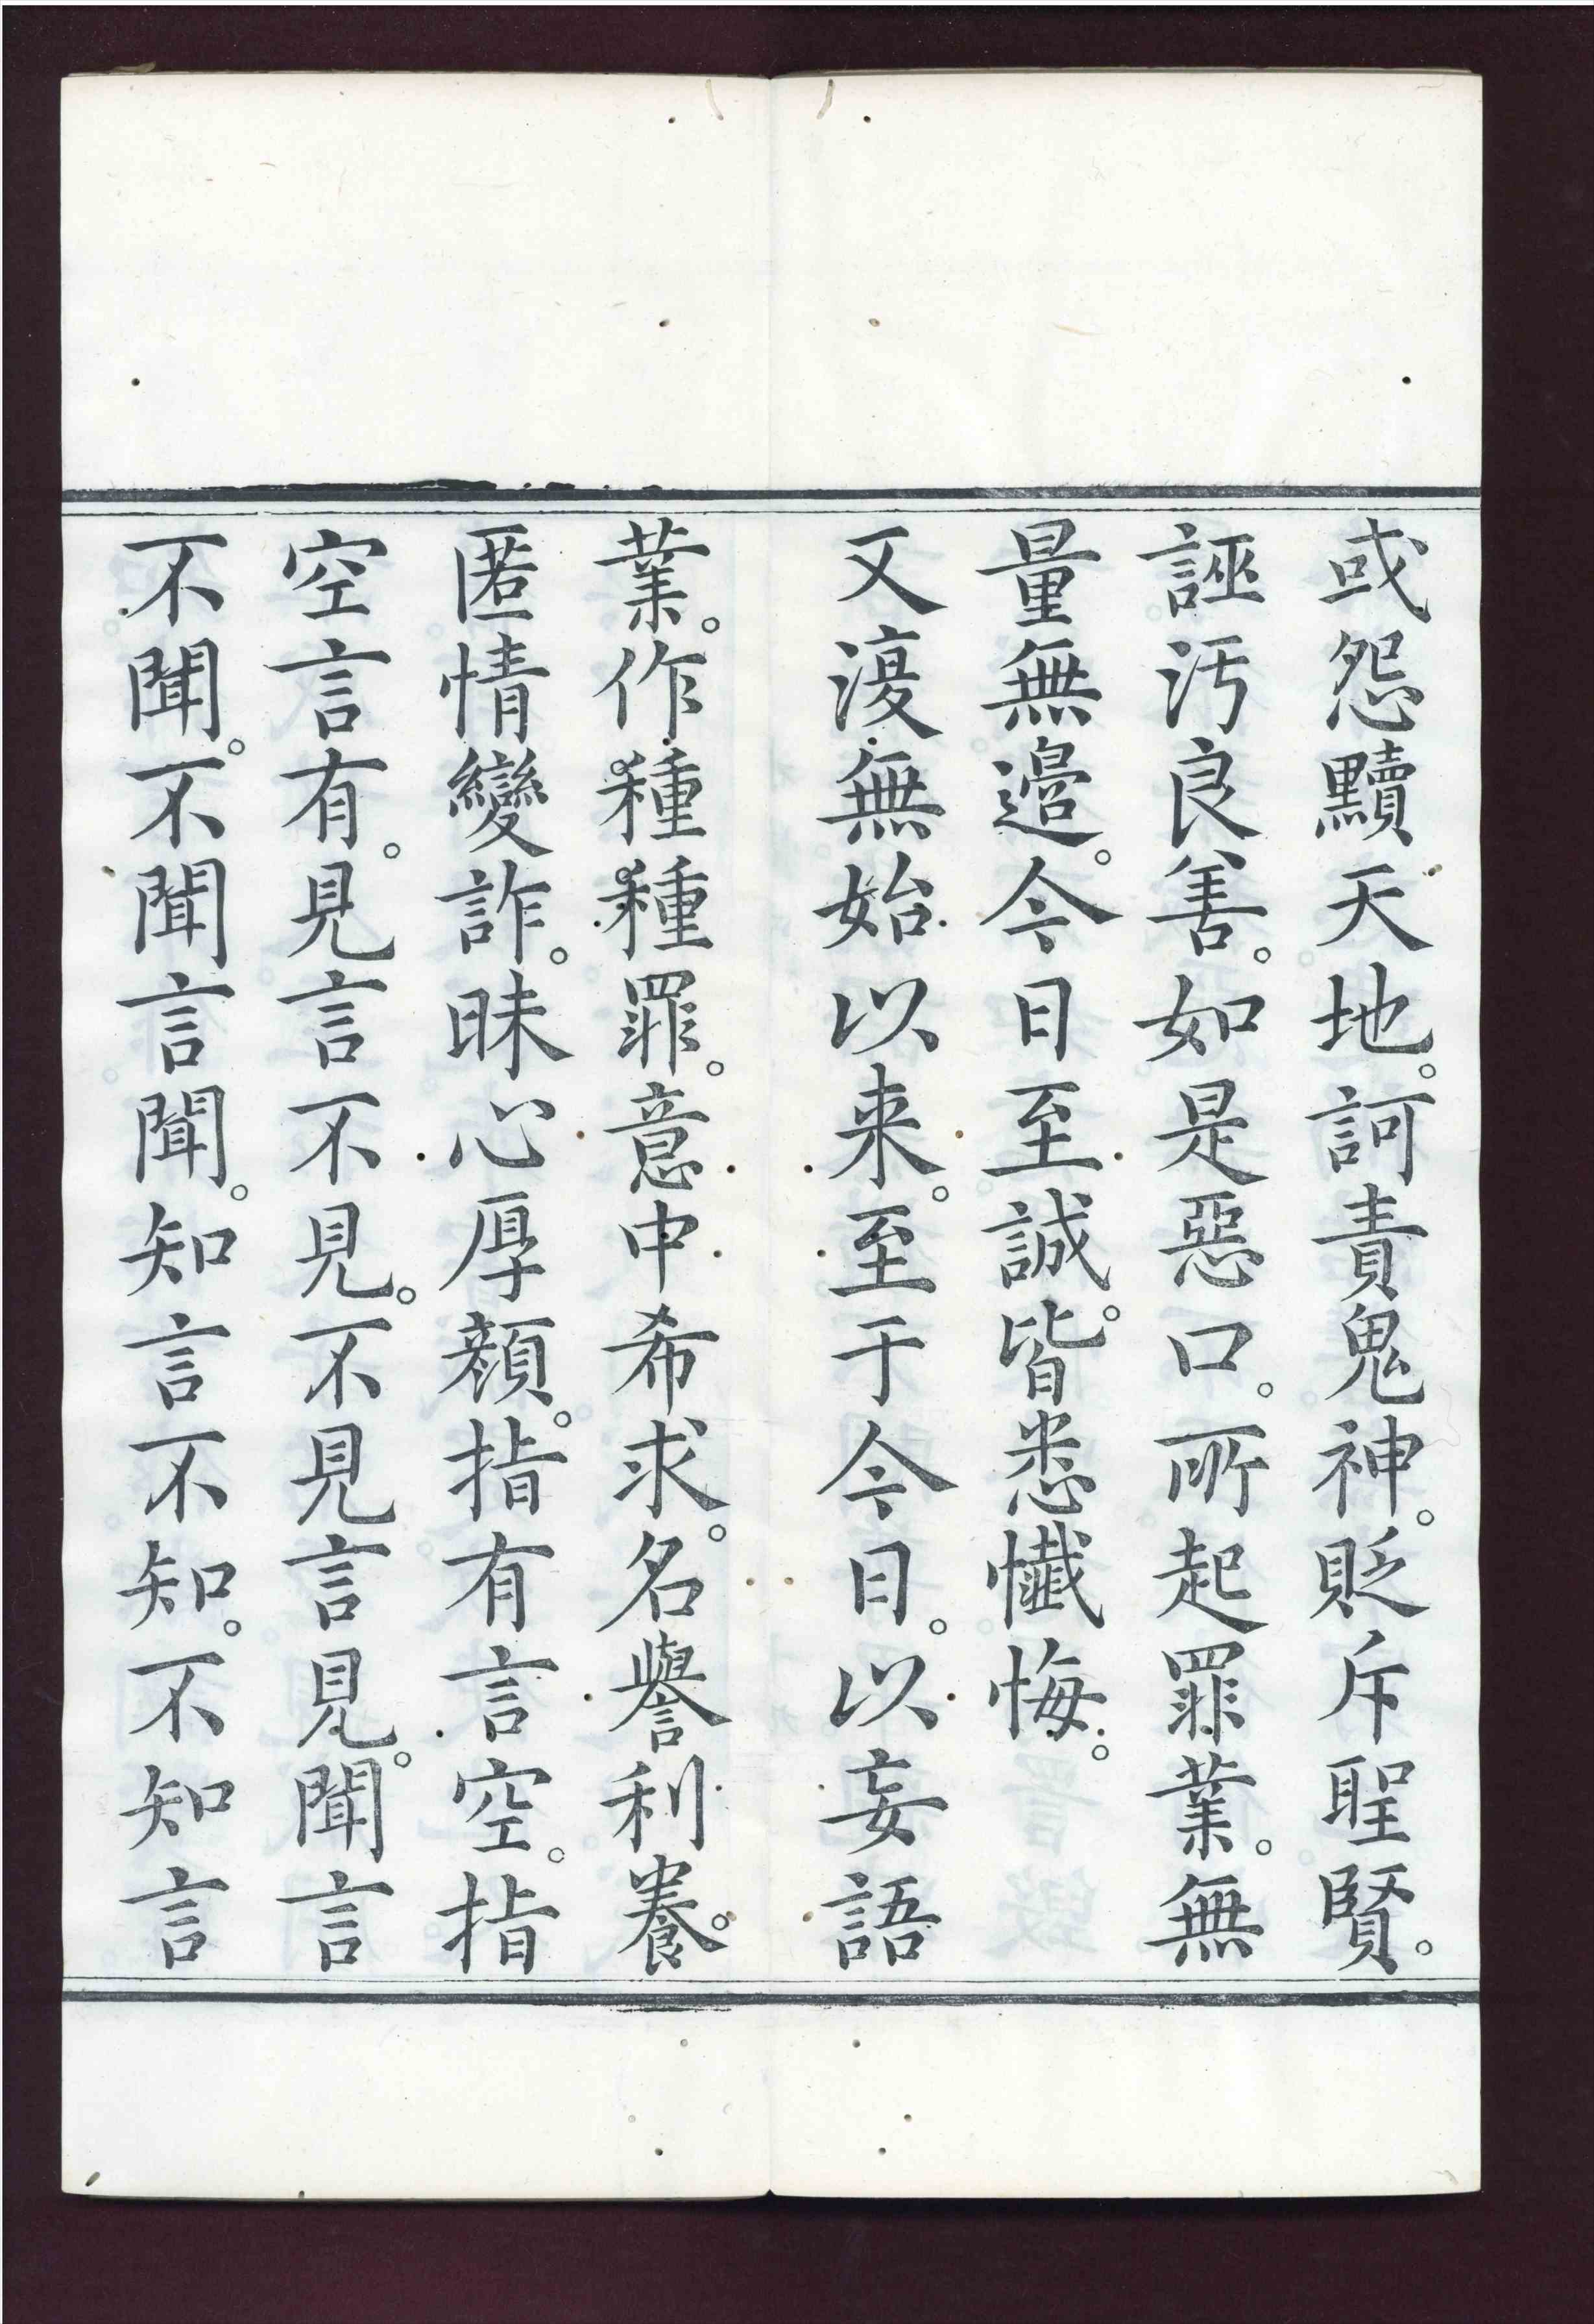 或怨黷天地。訶責鬼神。貶斥聖賢。
誣汚良善。如是惡口。所起罪業。無
量無邊。今日至誠。皆悉懺悔。
又復無始以来。至于今日。以妄語
業。作種種罪。意中希求。名譽利養。
匿情變詐。昧心厚顔。指有言空。指
空言有。見言不見。不見言見。聞言
不聞。不聞言聞。知言不知。不知言